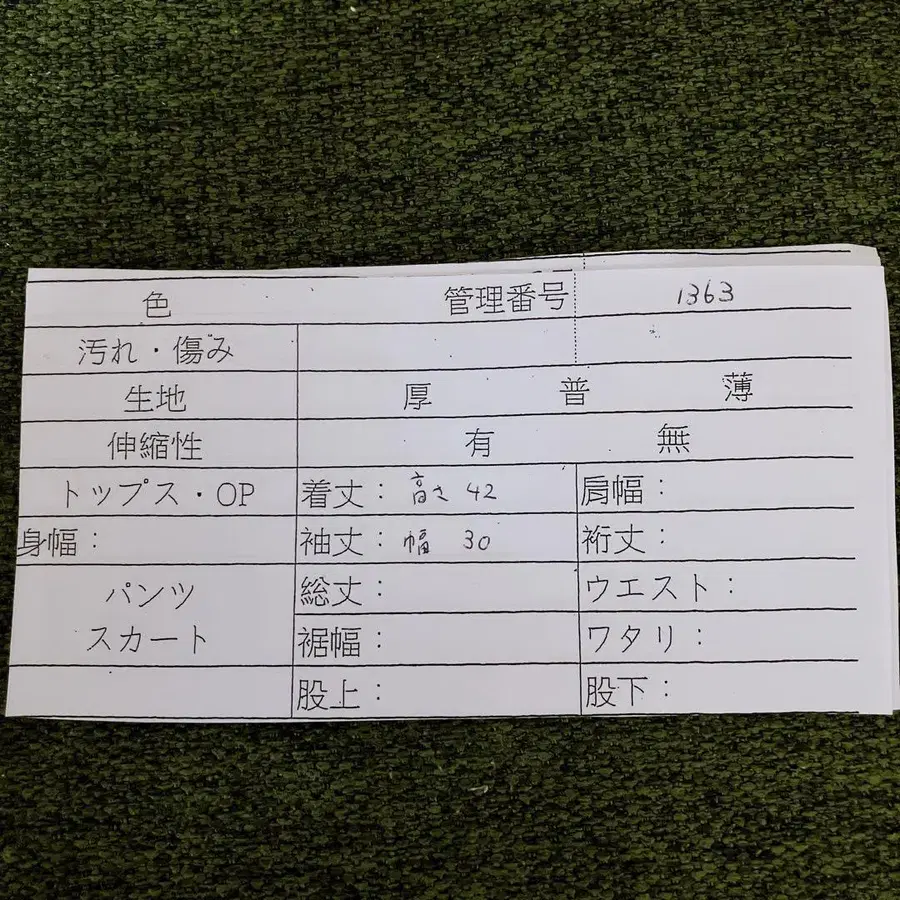 色 管理番号 1363
汚れ・傷み
生地 厚 普 薄
伸縮性 有 無
トップス・OP 着丈： 高さ 42 肩幅：
身幅： 袖丈： 幅 30 裄丈：
パンツ 総丈： ウエスト：
スカート 裾幅： ワタリ：
股上： 股下：